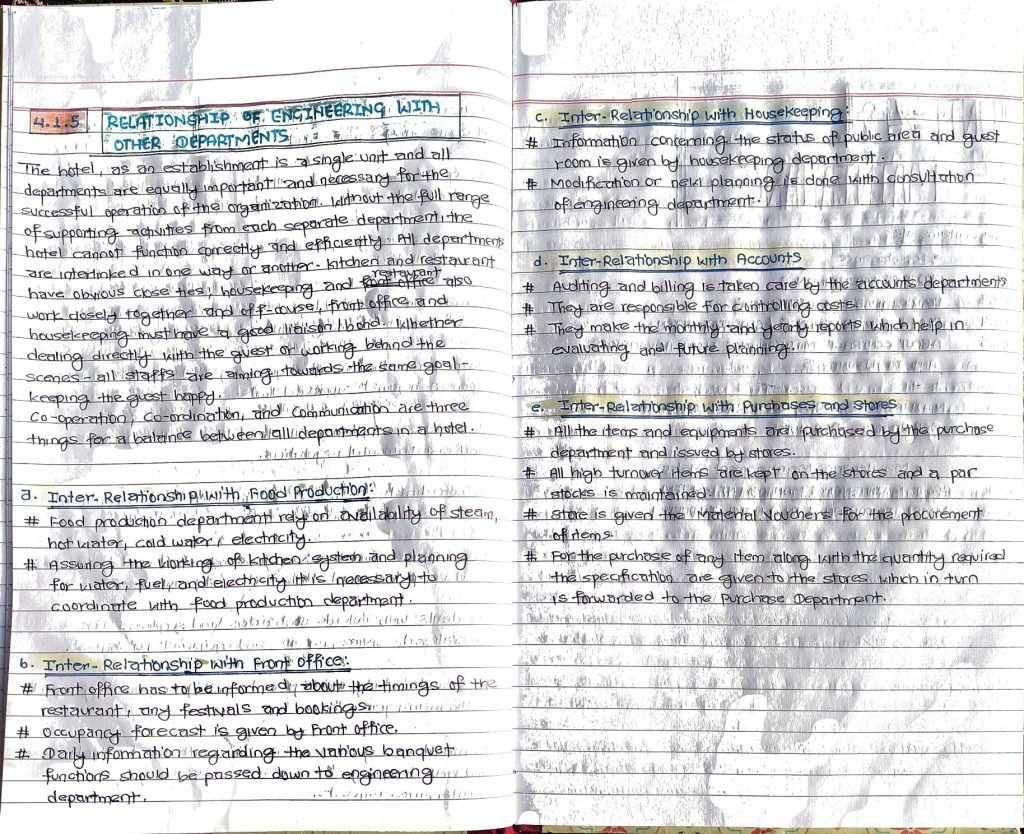 4.1.5 RELATIONSHIP OF ENGINEERING WITH
OTHER DEPARTMENTS
The hotel, as an establishment is a single unit and all
departments are equally important and necessary for the
successful operation of the organization. Without the full range
of supporting activities from each separate department, the
hotel cannot function correctly and efficiently. All departments
are interlinked in one way or another. Kitchen and restaurant
have obvious close ties, housekeeping and restaurant also
work closely together and off-course, front office and
housekeeping must have a good liaison / bond. Whether
dealing directly with the guest or working behind the
scenes - all staffs are aiming towards the same goal -
keeping the guest happy.
Co-operation, co-ordination, and communication are three
things for a balance between all departments in a hotel.
a. Inter-Relationship with Food Production:
# Food production department rely on availability of steam,
hot water, cold water, electricity.
# Assuring the working of kitchen system and planning
for water, fuel, and electricity it is necessary to
coordinate with food production department.
b. Inter-Relationship with Front office:
# Front office has to be informed, about the timings of the
restaurant, any festivals and bookings.
# Occupancy forecast is given by Front office.
# Daily information regarding the various banquet
functions should be passed down to engineering
department.
c. Inter-Relationship with Housekeeping:
# Information concerning the status of public area and guest
room is given by housekeeping department.
# Modification or new planning is done with consultation
of engineering department.
d. Inter-Relationship with Accounts
# Auditing and billing is taken care by the accounts departments
# They are responsible for controlling costs.
# They make the monthly and yearly reports which help in
evaluating and future planning.
e. Inter-Relationship with Purchases and stores
# All the items and equipments are purchased by the purchase
department and issued by stores.
# All high turnover items are kept on the stores and a par
stocks is maintained.
# Store is given the Material Vouchers for the procurement
of items.
# For the purchase of any item along with the quantity required
the specification are given to the stores which in turn
is forwarded to the Purchase Department.